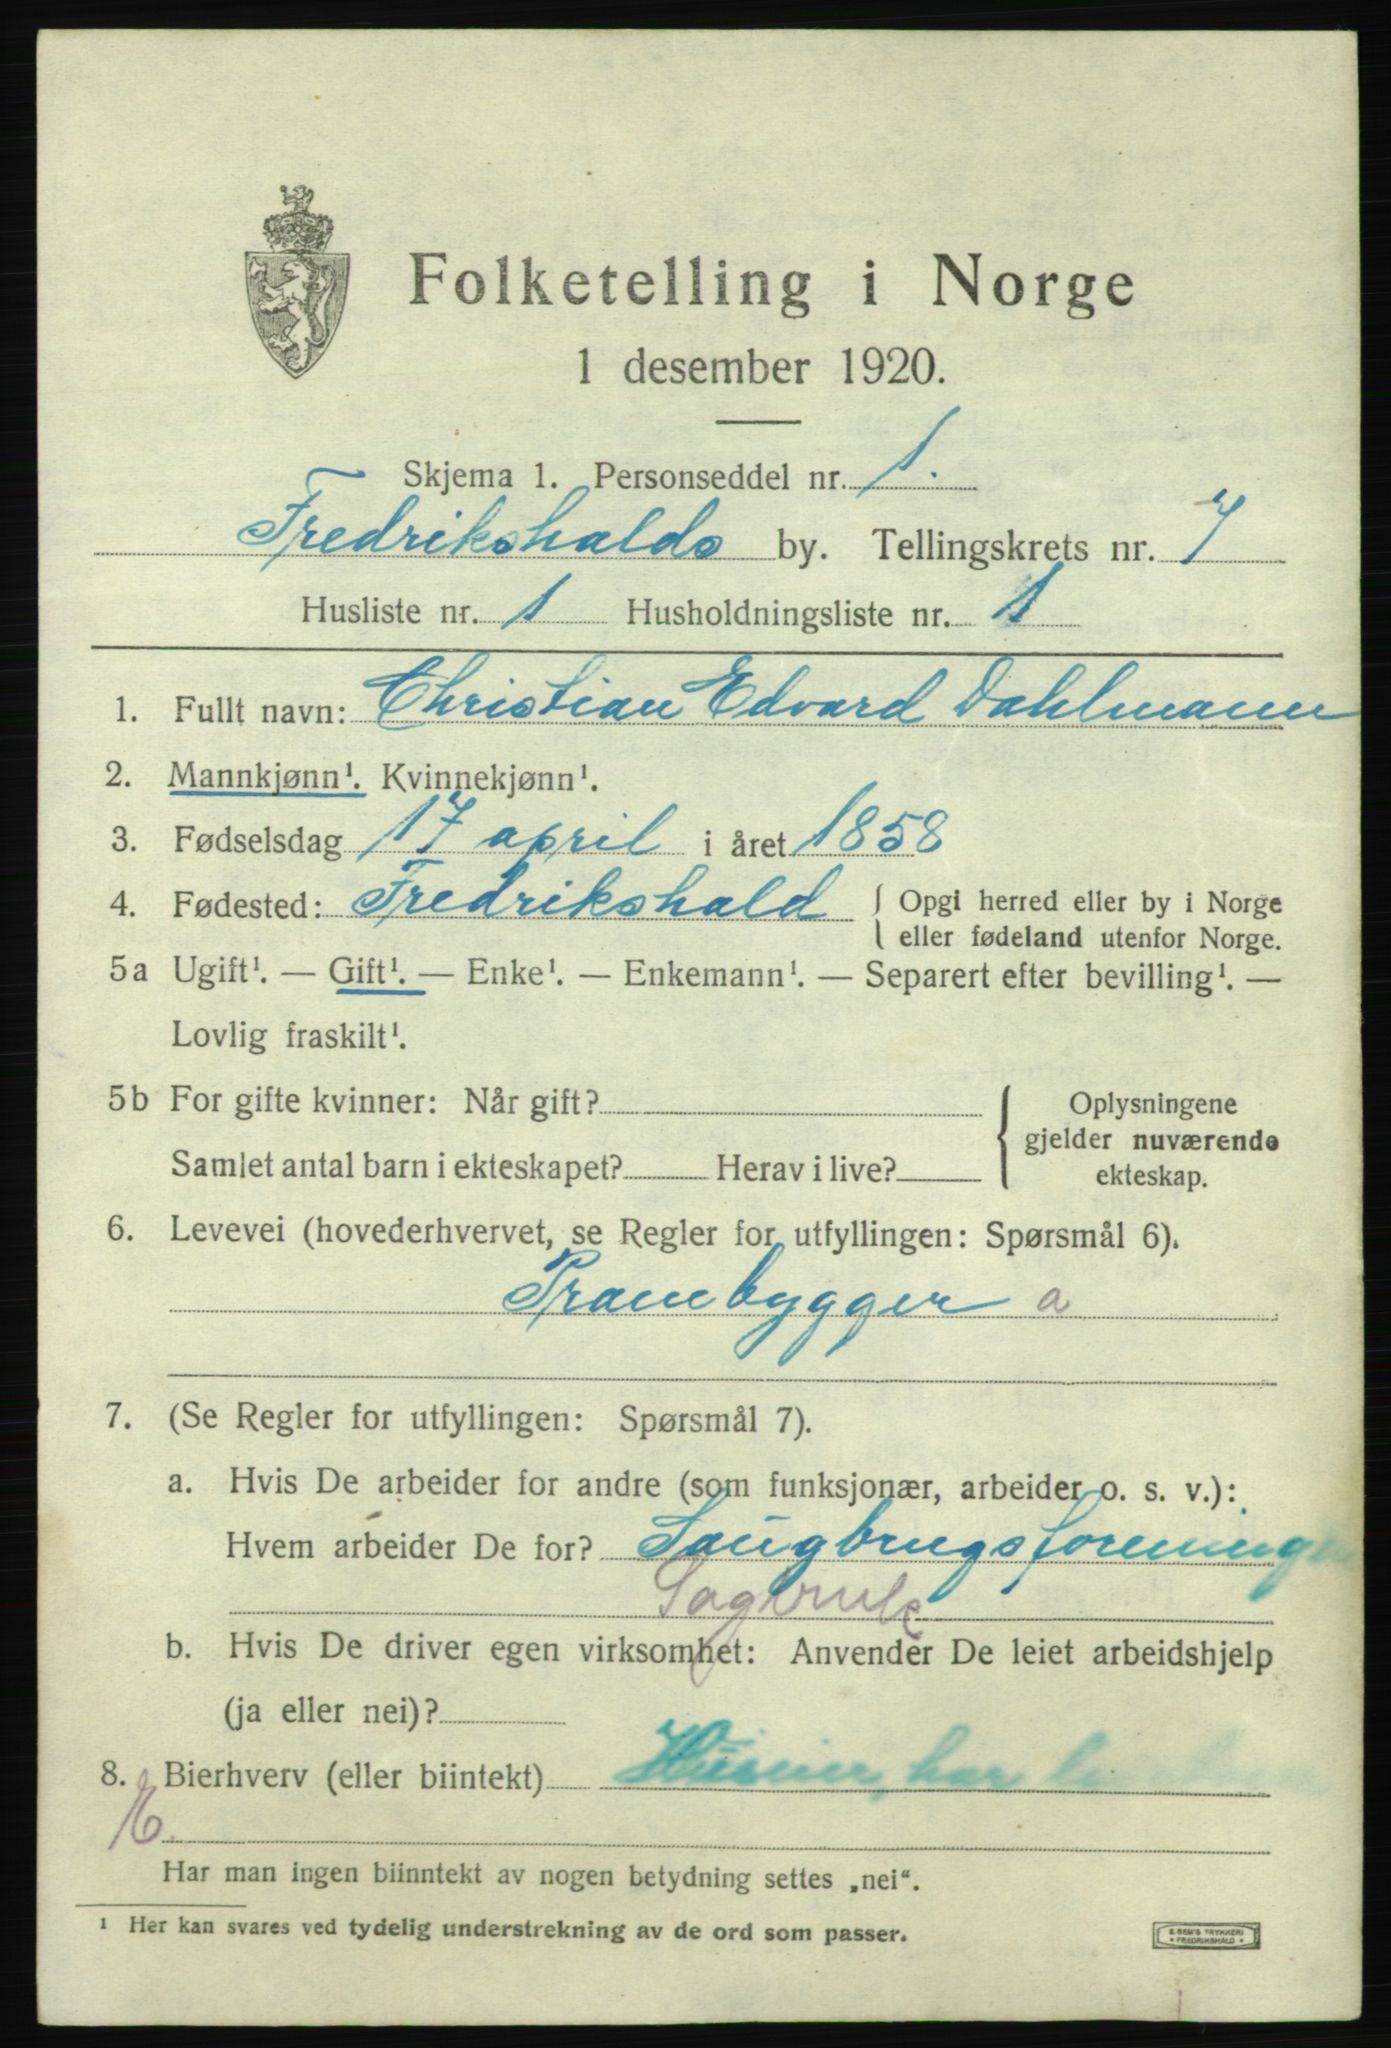 Folketelling i Norge
1 desember 1920.
Skjema 1. Personseddel nr. 1.
Fredrikshalds by. Tellingskrets nr. 7
Husliste nr. 1 Husholdningsliste nr. 1
1. Fullt navn: Christian Edvard Dahlmann
2. Mannkjønn¹. Kvinnekjønn¹.
3. Fødselsdag 17 april i året 1858
4. Fødested: Fredrikshald { Opgi herred eller by i Norge
eller fødeland utenfor Norge.
5a Ugift¹. — Gift¹. — Enke¹. — Enkemann¹. — Separert efter bevilling¹. —
Lovlig fraskilt¹.
5b For gifte kvinner: Når gift? { Oplysningene
gjelder nuværende
Samlet antal barn i ekteskapet? Herav i live?
ekteskap.
6. Levevei (hovederhvervet, se Regler for utfyllingen: Spørsmål 6).
Prambygger a
7. (Se Regler for utfyllingen: Spørsmål 7).
a. Hvis De arbeider for andre (som funksjonær, arbeider o. s. v.):
Hvem arbeider De for? Saugbrugsforeningen
Sagbruk
b. Hvis De driver egen virksomhet: Anvender De leiet arbeidshjelp
(ja eller nei)?
8. Bierhverv (eller biintekt) Huseier, har
E
Har man ingen biinntekt av nogen betydning settes „nei“.
¹ Her kan svares ved tydelig understrekning av de ord som passer.
E. SEM'S TRYKKERI
• FREDRIKSHALD •